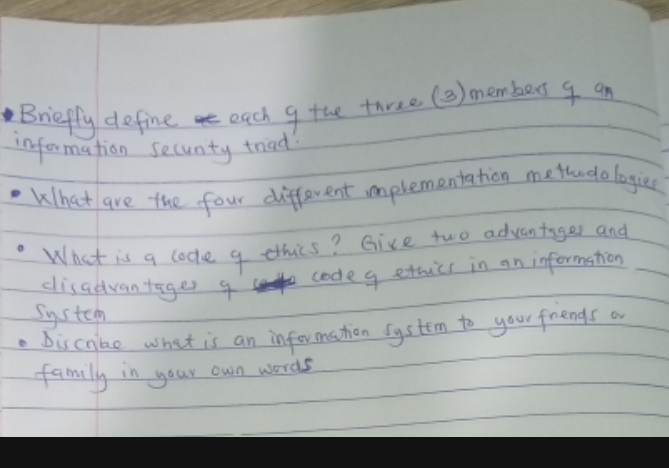 • Briefly define each of the three (3) members of an
information security triad.
• What are the four different implementation methodologies
• What is a code of ethics? Give two advantages and
disadvantages of code of ethics in an information
System
• Discribe what is an information system to your friends or
family in your own words